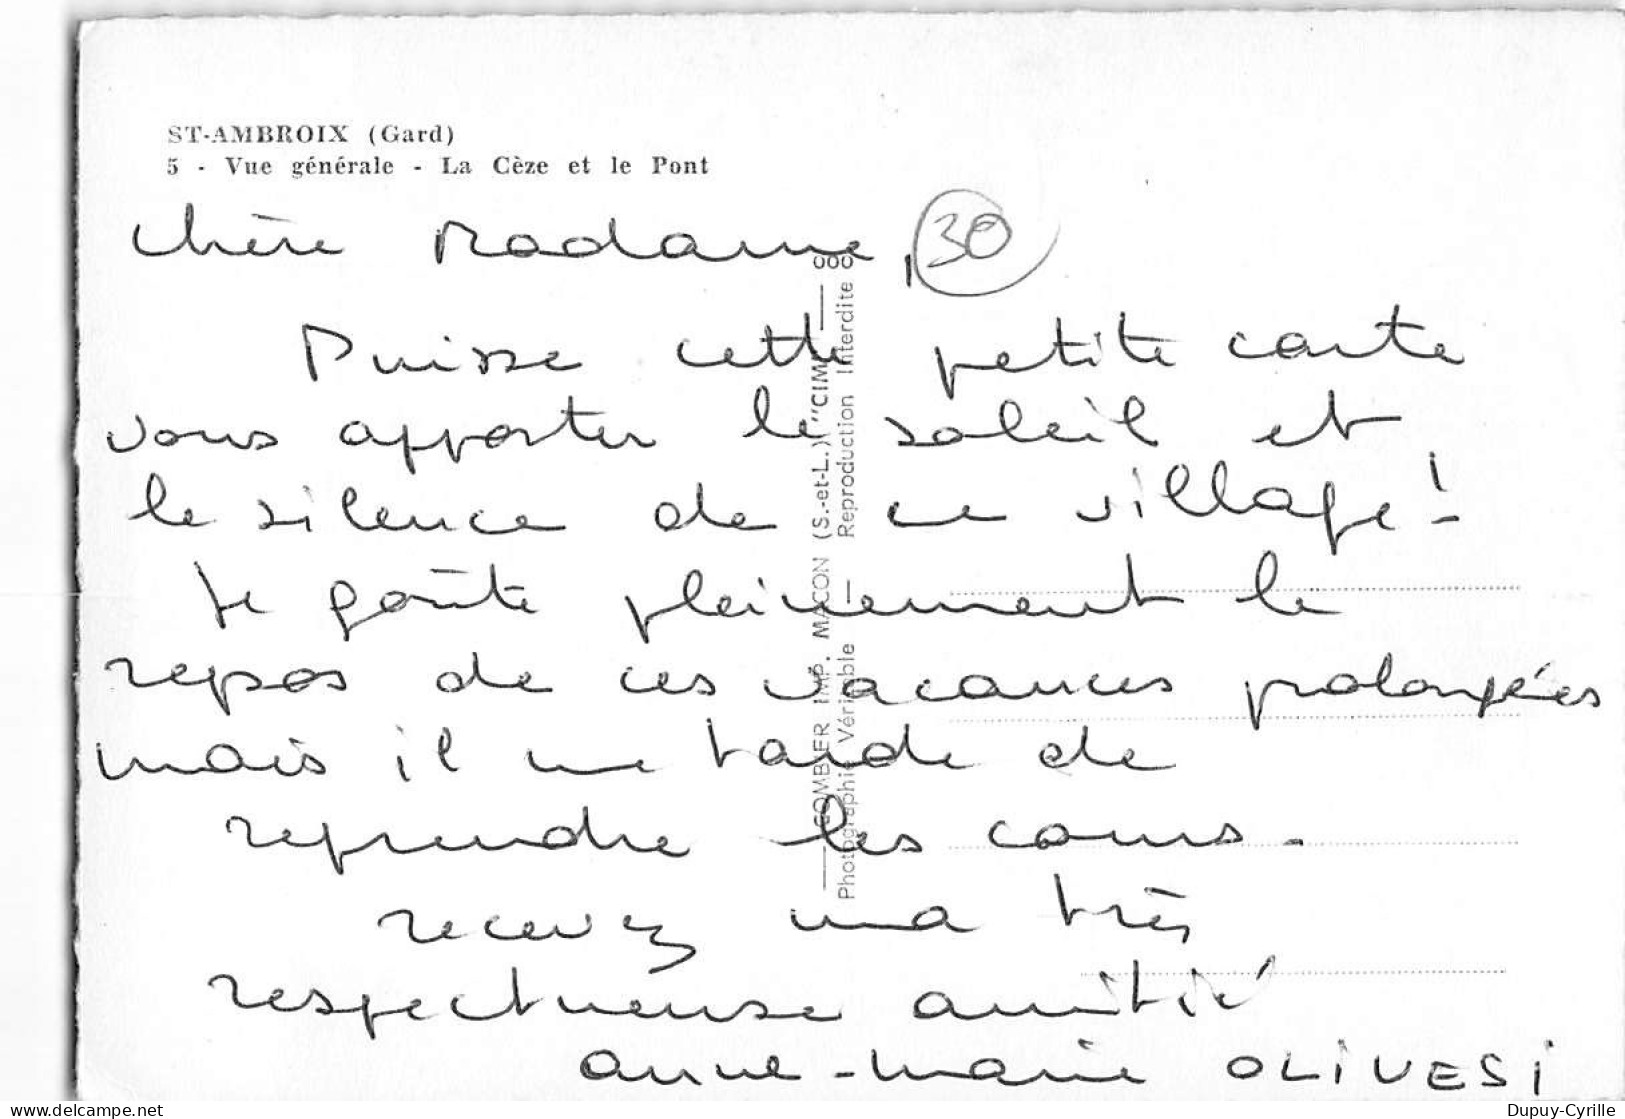 ST-AMBROIX (Gard)
5 - Vue générale - La Cèze et le Pont
Chère Madame,
30
Puisse cette petite carte
vous apporter le soleil et
le silence de ce village !
Je goûte pleinement le
repos de ces vacances prolongées
mais il me tarde de
reprendre les cours.
recevez ma très
respectueuse amitié
Anne-Marie OLIVESI
COMBIER IMP. MACON (S.-et-L.) "CIM"
Photographie Véritable — Reproduction Interdite
000
delcampe.net
Dupuy-Cyrille